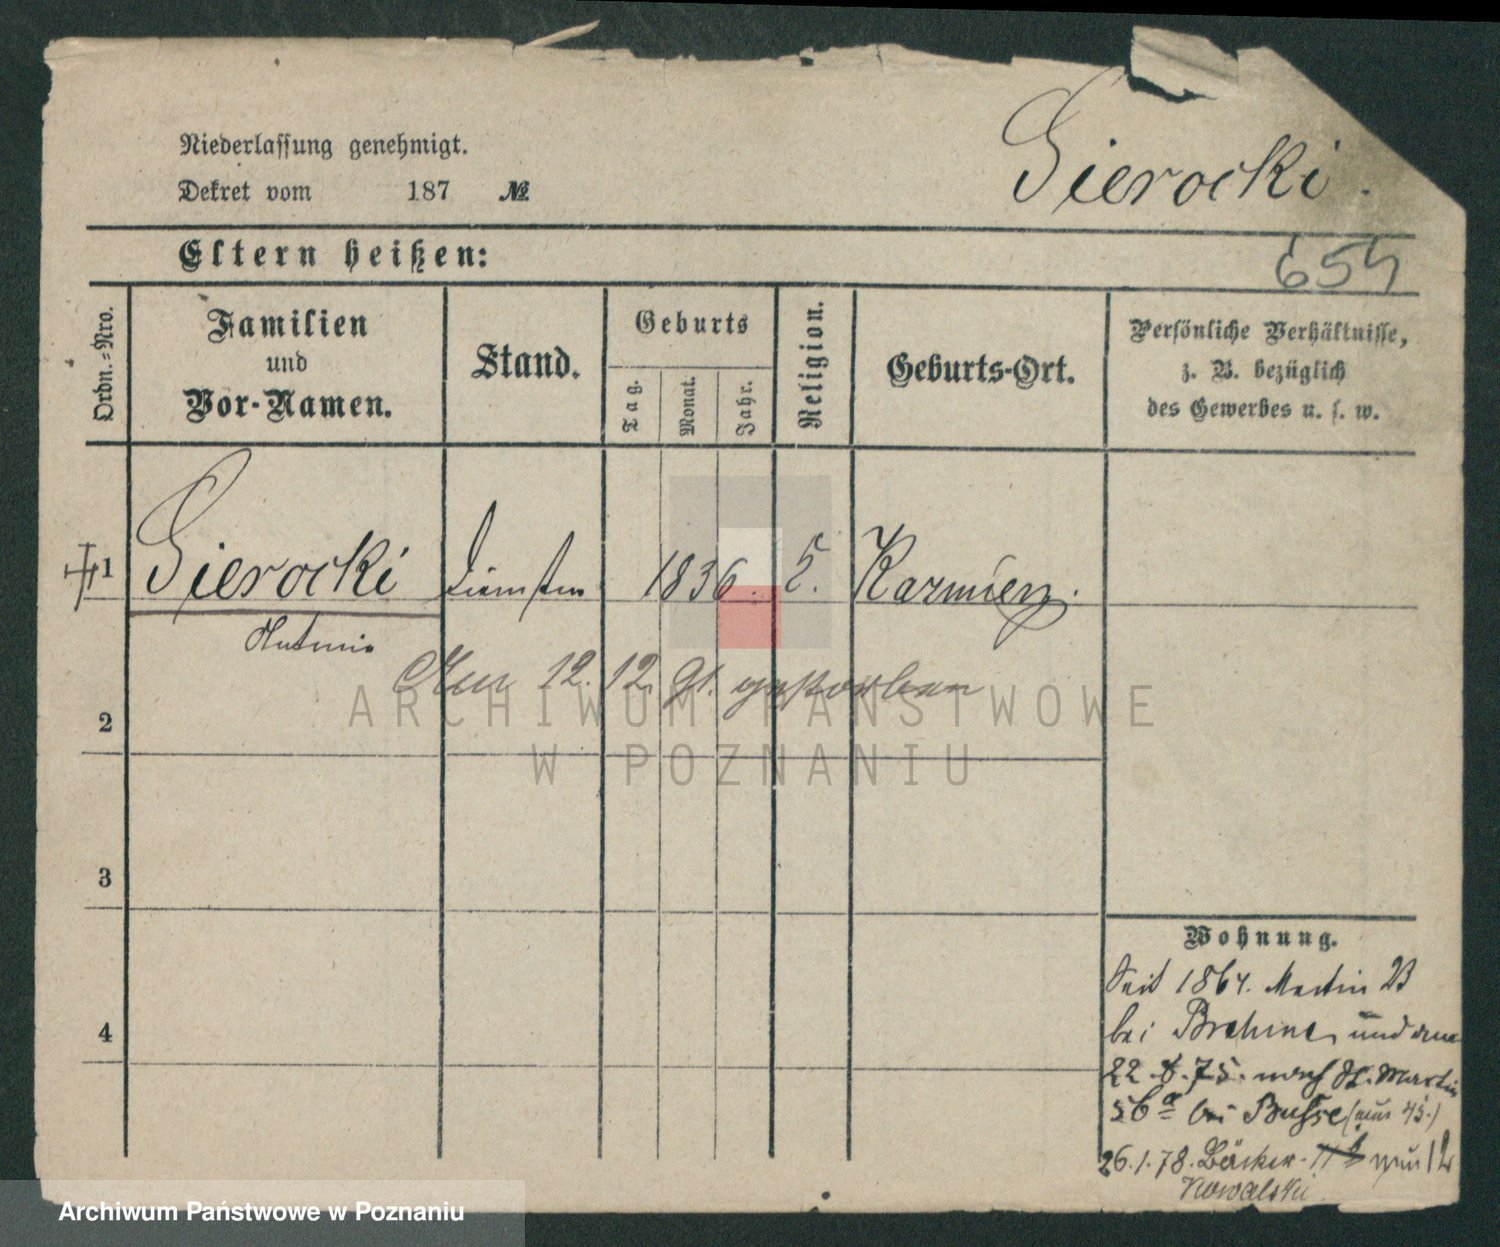 Niederlassung genehmigt.
Dekret vom 187 №
Sierocki.
Eltern heißen:
654
Ordn.-Nro.
Familien
und
Vor-Namen.
Stand.
Geburts
Tag.
Monat.
Jahr.
Religion.
Geburts-Ort.
Persönliche Verhältnisse,
z. B. bezüglich
des Gewerbes u. s. w.
1 Sierocki 1836. Kazmierz.
Antonie
Am 12. 12. 91. gestorben
2
3
4
Wohnung.
Seit 1864. Martin 23
bei und am
22. 8. 75. nach St. Martin
56a bei Busse (nun 45.)
26. 1. 78. Bäcker. nun
Kowalski
ARCHIWUM PAŃSTWOWE
W POZNANIU
Archiwum Państwowe w Poznaniu